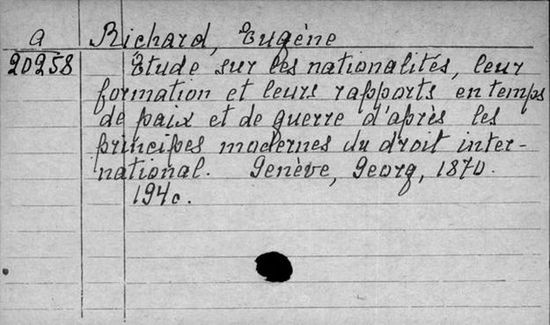 a Richard, Eugène
20258 Etude sur les nationalités, leur
formation et leurs rapports en temps
de paix et de guerre d'après les
principes modernes du droit inter-
national. Genève, Georg, 1870.
194o.